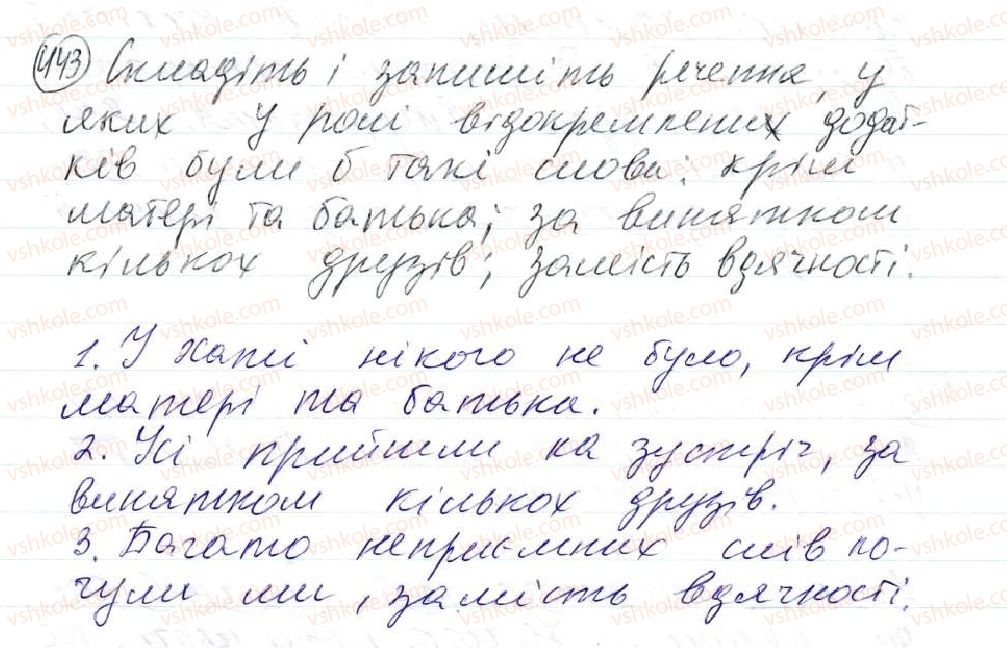 443 Складіть і запишіть речення, у
яких у ролі відокремлених додат-
ків були б такі слова: крім
матері та батька; за винятком
кількох друзів; замість вдячності.
1. У хаті нікого не було, крім
матері та батька.
2. Усі прийшли на зустріч, за
винятком кількох друзів.
3. Багато неприємних слів по-
чули ми, замість вдячності.